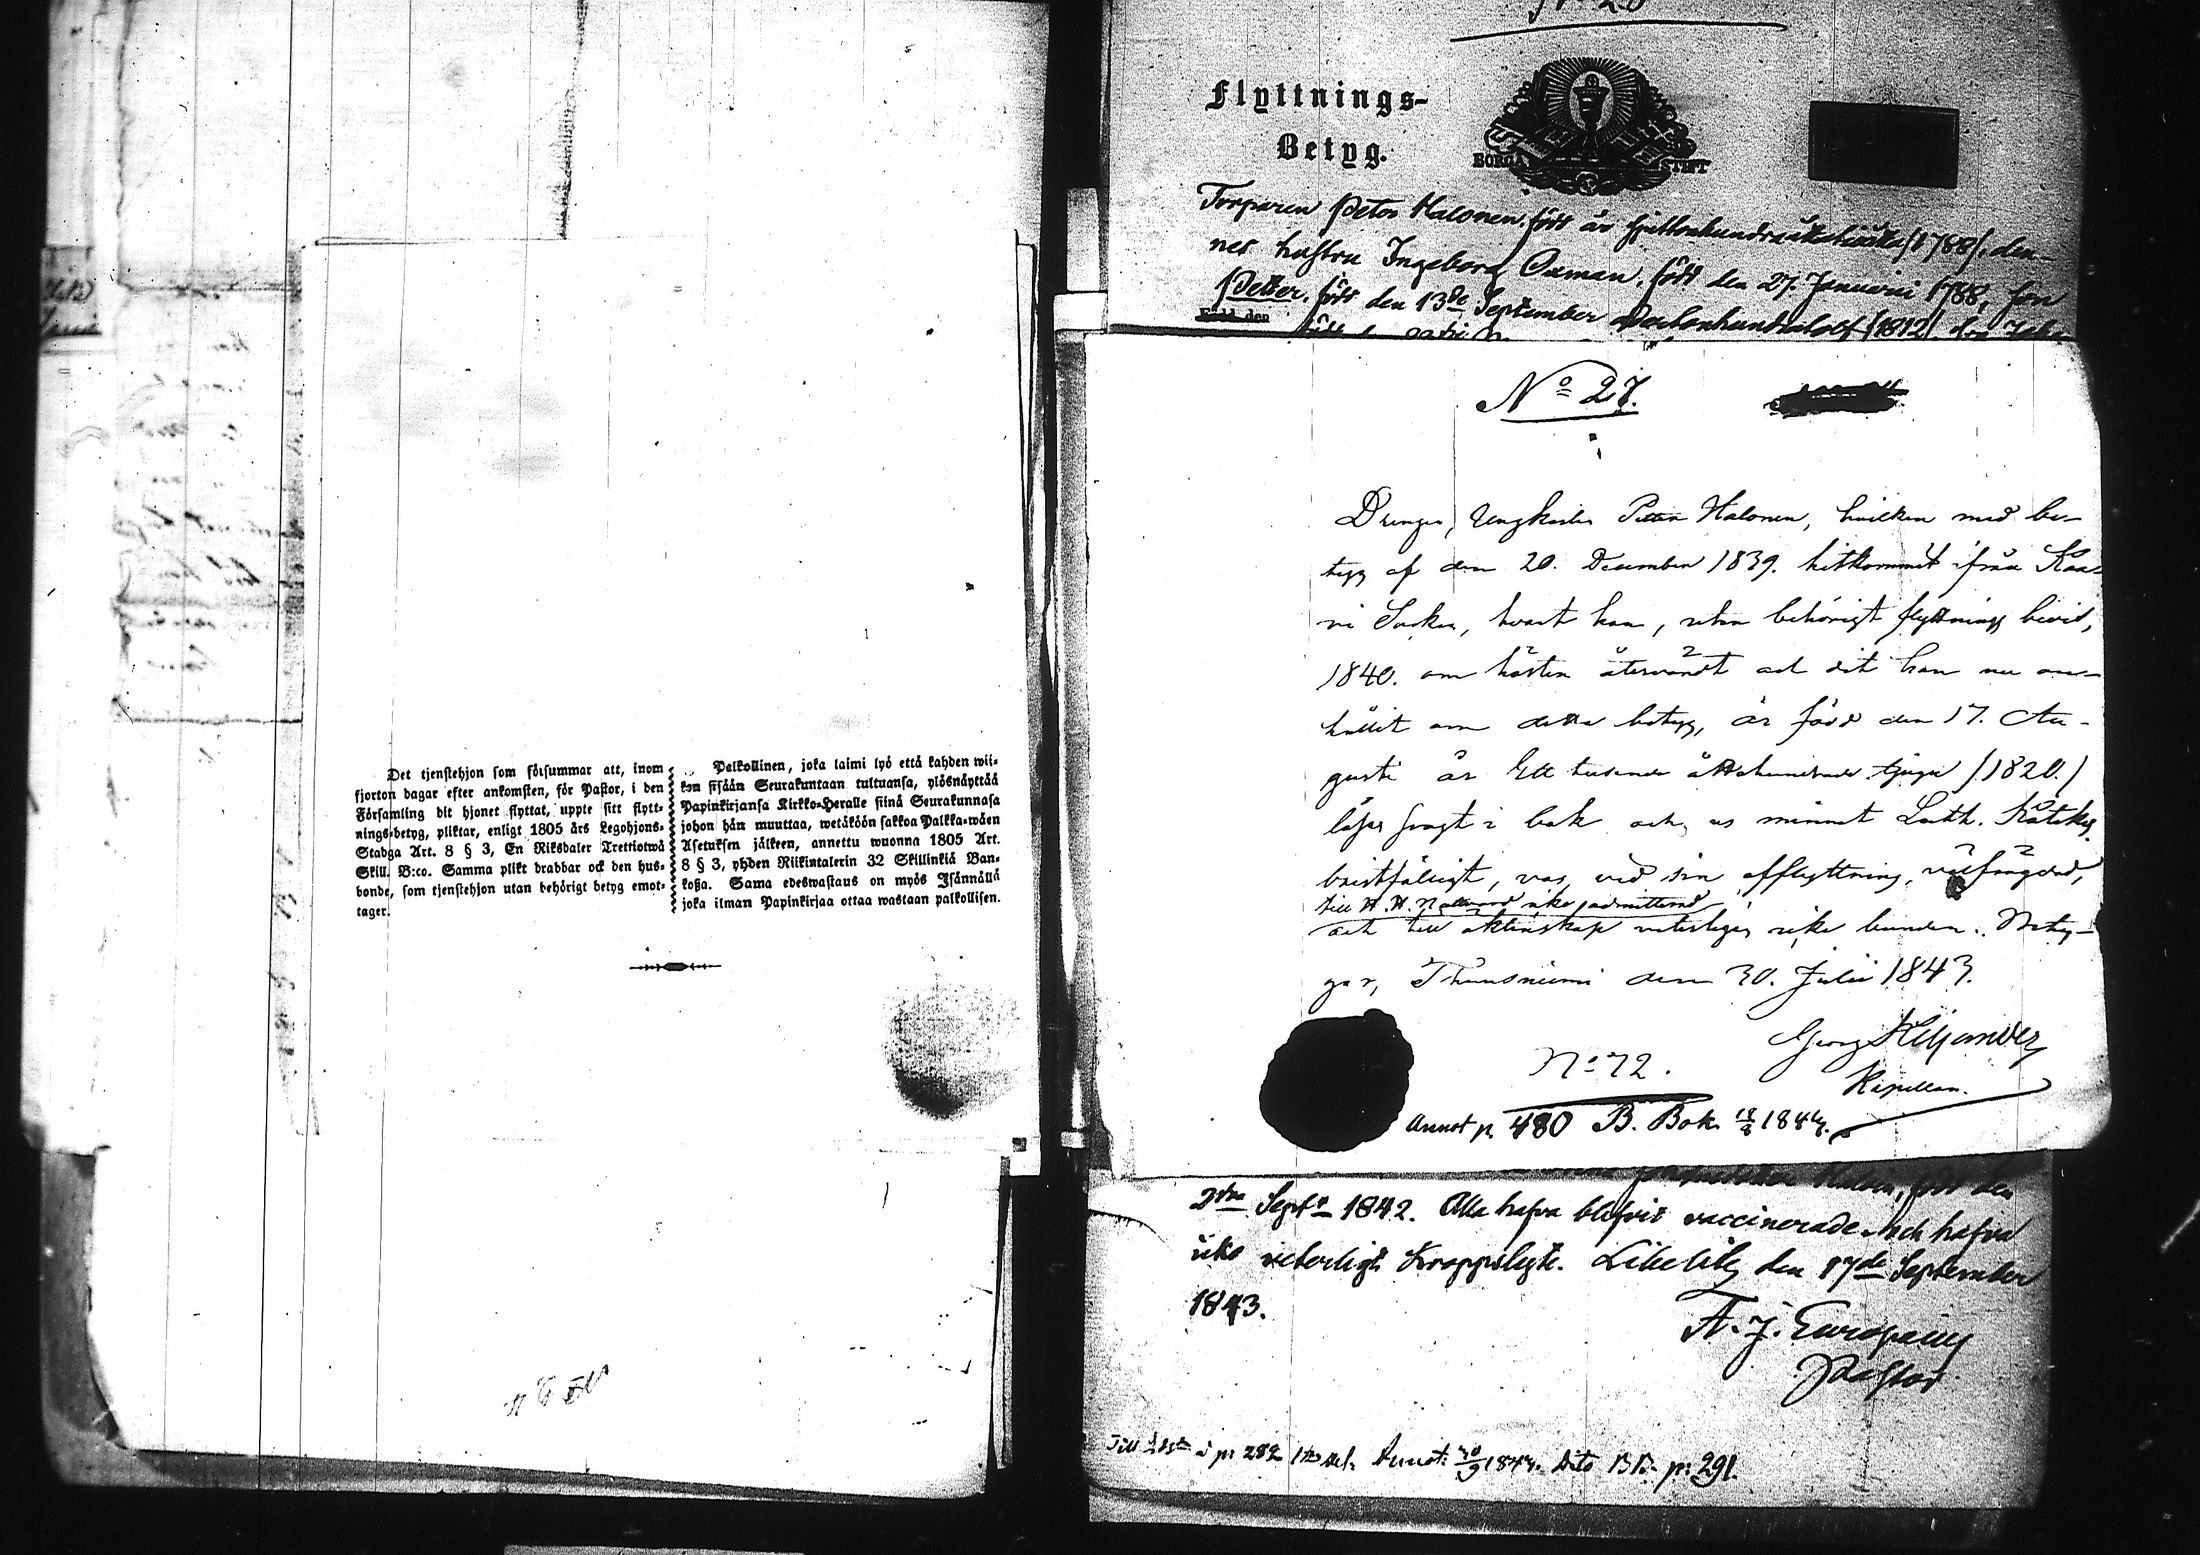 Det tjenstehjon som försummar att, inom
fjorton dagar efter ankomsten, för Pastor, i den
Församling dit hjonet flyttat, uppte sitt flytt-
nings-betyg, pliktar, enligt 1805 års Legohjons-
Stadga Art. 8 § 3, En Riksdaler Trettiotwå
Skill. B:co. Samma plikt drabbar ock den hus-
bonde, som tjenstehjon utan behörigt betyg emot-
tager.
Palkollinen, joka laimi lyö että kahden wii-
kon sisään Seurakuntaan tultuansa, ylösnäyttää
Papinkirjansa Kirkko-Heralle siinä Seurakunnasa
johon hän muuttaa, wetäköön sakkoa Palkka-wäen
Asetuksen jälkeen, annettu wuonna 1805 Art.
8 § 3, yhden Riikintalerin 32 Skillinkiä Ban-
koßa. Sama edeswastaus on myös Isännällä
joka ilman Papinkirjaa ottaa wastaan palkollisen.
Flyttnings-
Betyg.
BORGÅ STIFT
Torparen Peter Halonen, född år sjuttonhundraåttatioåtta (1788), den-
nes hustru Ingeborg Oxman, född den 27. Januarii 1788, son
Petter, född den 13de September adertonhundratolf (1812)
Född den
No 27.
Drengen, Ungkarlen Petter Halonen, hvilken med be-
tyg af den 20. December 1839. hitkommit ifrån Kaa-
vi Socken, hvart han, utan behörigt flyttnings bevis,
1840. om hösten återvändt och dit han nu an-
hållit om detta betyg, är född den 17. Au-
gusti år Ett tusende åttahundrade tjugu (1820.)
läser svagt i bok och ur minnet Luth. Katekes
bristfälligt, var, vid sin afflyttning, välfrägdad,
till H. H. Nattvard icke admitterad
och till äktenskap veterligen icke bunden. Bety-
gar, Thuusniemi den 30. Julii 1843.
Georg Kiljander
Kapellan.
No 72.
Annot p. 480 B. Bok. 1844.
Född den
2dra Septr 1842. Alla hafva blifvit vaccinerade och hafva
icke veterligt kroppslyte. Libelits den 17de September
1843.
A. J. Europaeus
Pastor
p. 282 Annot: 30/9 1844. Dito BB. p: 291.